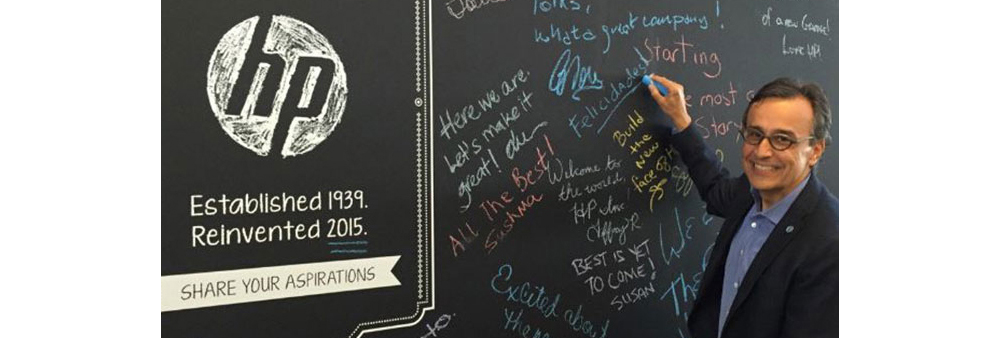 hp
Established 1939.
Reinvented 2015.
SHARE YOUR ASPIRATIONS
folks,
what a great company!
of a new
Love HP!
Starting
Felicidades!
most
Story
Here we are.
Let's make it
great!
Build
the
New
face of
All The Best!
Sushma
Welcome to
the world,
HP Inc
Jeffrey R
BEST IS YET
TO COME!
SUSAN
Excited about
the